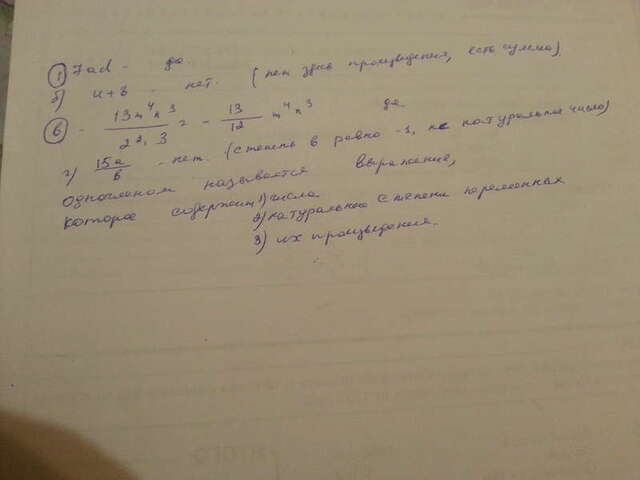 1) 7ad - да.
б) 4+8 - нет. (нет здесь произведения, есть сумма)
в) - 13m⁴n³ / 2²·3 = - 13/12 m⁴n³ да.
г) 15a/b - нет. (степень b равно -1, не натуральное число)
Одночленом называется выражение,
которое содержит 1) числа
2) натуральное степени переменных
3) их произведения.